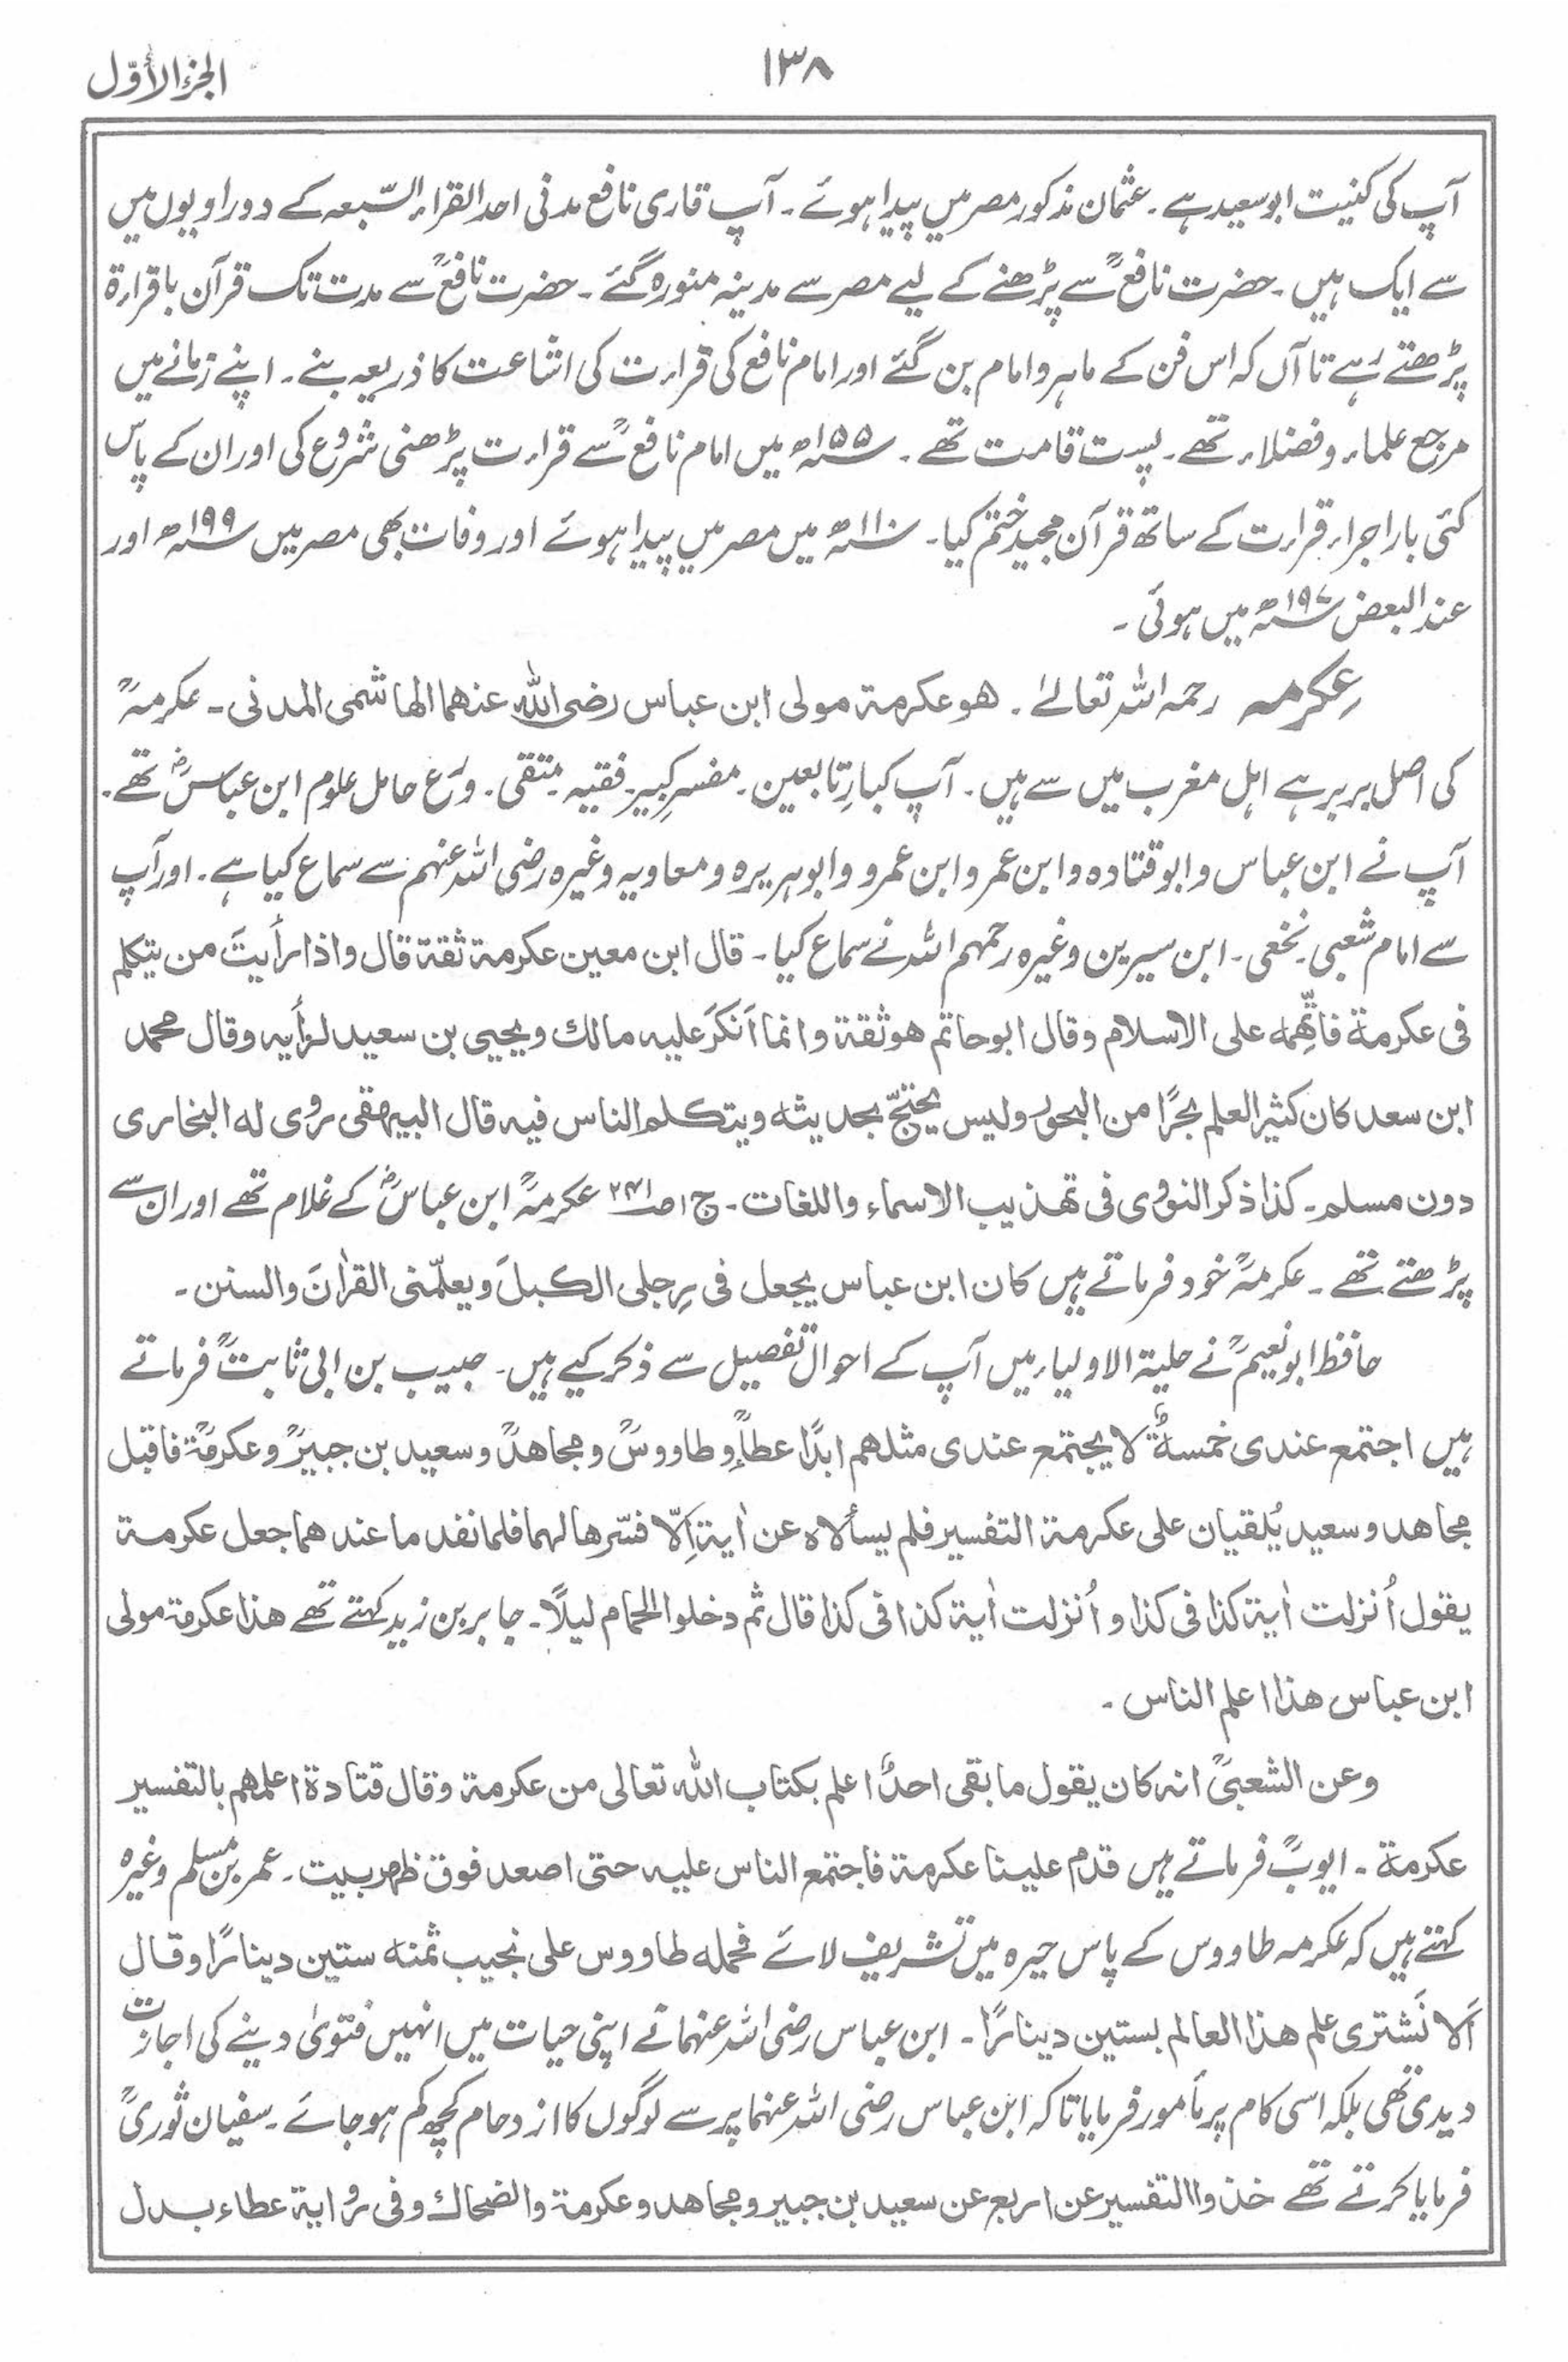 الجزء الأوّل
۱۳۸
آپ کی کنیت ابوسعید ہے ۔ عثمان مذکور مصر میں پیدا ہوئے ۔ آپ قاری نافع مدنی احد القراء السّبعہ کے دو راویوں میں
سے ایک ہیں ۔ حضرت نافعؒ سے پڑھنے کے لیے مصر سے مدینہ منورہ گئے ۔ حضرت نافعؒ سے مدت تک قرآن باقراءۃ
پڑھتے رہے تا آں کہ اس فن کے ماہر و امام بن گئے اور امام نافع کی قراءت کی اشاعت کا ذریعہ بنے ۔ اپنے زمانے میں
مرجع علماء و فضلاء تھے ۔ پست قامت تھے ۔ ۱۵۵ھ میں امام نافعؒ سے قراءت پڑھنی شروع کی اور ان کے پاس
کئی بار اجراء قراءت کے ساتھ قرآن مجید ختم کیا ۔ ۱۱۰ھ میں مصر میں پیدا ہوئے اور وفات بھی مصر میں ۱۹۹ھ اور
عند البعض ۱۹۷ھ میں ہوئی ۔
عِکرمہ رحمہ اللہ تعالیٰ ۔ هو عكرمة مولى ابن عباس رضى الله عنهما الهاشمى المدنى ۔ عکرمہؒ
کی اصل بربر ہے اہل مغرب میں سے ہیں ۔ آپ کبارِ تابعین ۔ مفسرِ کبیر ۔ فقیہ ۔ متقی ۔ ورَع حامل علوم ابن عباسؓ تھے ۔
آپ نے ابن عباس و ابوقتادہ و ابن عمر و ابن عمرو و ابوہریرہ و معاویہ وغیرہ رضی اللہ عنہم سے سماع کیا ہے ۔ اور آپ
سے امام شعبی ۔ نخعی ۔ ابن سیرین وغیرہ رحمہم اللہ نے سماع کیا ۔ قال ابن معين عكرمة ثقة قال واذا رأيتَ من يتكلم
فى عكرمة فاتّهِمه على الاسلام وقال ابوحاتم هو ثقة وانما اَنكرَ عليه مالك ويحيى بن سعيد لرأيه وقال محمد
ابن سعد كان كثير العلم بحرًا من البحور وليس يحتجّ بحديثه ويتكلم الناس فيه قال البيهقى روى له البخارى
دون مسلم ۔ كذا ذكر النووى فى تهذيب الاسماء واللغات ۔ ج ۱ ص ۳۴۱ عکرمہؒ ابن عباسؓ کے غلام تھے اور ان سے
پڑھتے تھے ۔ عکرمہؒ خود فرماتے ہیں كان ابن عباس يجعل فى رِجلى الكبلَ ويعلّمنى القرٰانَ والسنن ۔
حافظ ابونعیمؒ نے حلیۃ الاولیاء میں آپ کے احوال تفصیل سے ذکر کیے ہیں ۔ حبیب بن ابی ثابتؒ فرماتے
ہیں اجتمع عندى خمسةٌ لا يجتمع عندى مثلهم ابدًا عطاءؒ و طاووسؒ و مجاهدؒ و سعيد بن جبيرؒ و عكرمةؒ فاقبل
مجاهد و سعيد يُلقيان على عكرمة التفسير فلم يسألاه عن اٰية اِلّا فسّرها لهما فلما نفد ما عندهما جعل عكرمة
يقول اُنزلت اٰية كذا فى كذا و اُنزلت اٰية كذا فى كذا قال ثم دخلوا الحمام ليلًا ۔ جابر بن زید کہتے تھے هذا عكرمة مولى
ابن عباس هذا اعلم الناس ۔
وعن الشعبىؒ انه كان يقول ما بقى احدٌ اعلم بكتاب الله تعالى من عكرمة وقال قتادة اعلمهم بالتفسير
عكرمة ۔ ایوبؒ فرماتے ہیں قدم علينا عكرمة فاجتمع الناس عليه حتى اصعد فوق ظهر بيت ۔ عمر بن مسلم وغیرہ
کہتے ہیں کہ عکرمہ طاووس کے پاس حیرہ میں تشریف لائے فحمله طاووس على نجيب ثمنه ستين دينارًا وقال
اَلا نَشترى علم هذا العالم بستين دينارًا ۔ ابن عباس رضی اللہ عنہما نے اپنی حیات میں انہیں فتویٰ دینے کی اجازت
دیدی تھی بلکہ اسی کام پر مأمور فرمایا تاکہ ابن عباس رضی اللہ عنہما پر سے لوگوں کا ازدحام کچھ کم ہو جائے ۔ سفیان ثوریؒ
فرمایا کرتے تھے خذوا التفسير عن اربع عن سعيد بن جبير و مجاهد و عكرمة والضحاك وفى رواية عطاء بدل